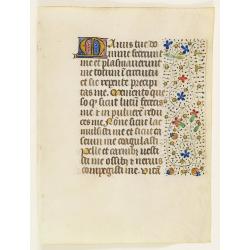 Manus tue do
mine fecerunt
me et plasmauerunt
me totum in circuitu
et sic repente precipi
tas me. Memento que
so q sicut lutum feceris
me et in puluerem redu
ces me. Nonne sicut lac
mulsisti me et sicut ca
seum me coagulasti
Pelle et carnib uestisti
me ossib et neruis
compegisti me. Vitam